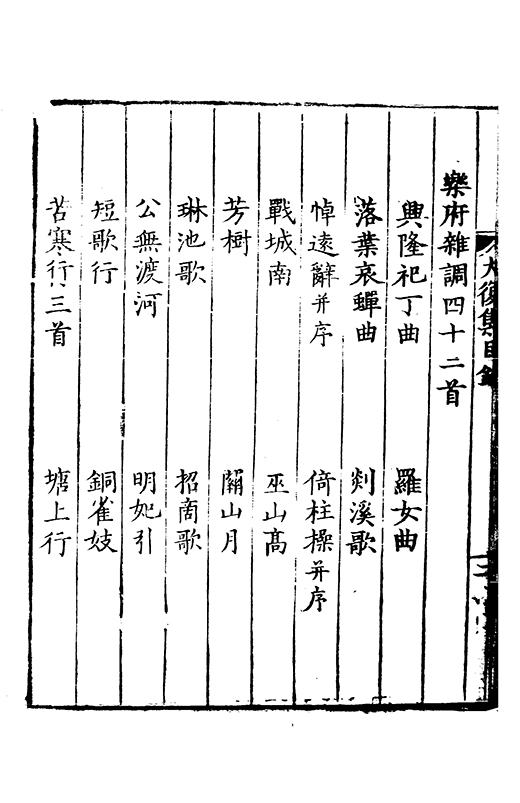 大復集目錄
樂府雜調四十二首
興隆祀丁曲　羅女曲
落葉哀蟬曲　剡溪歌
悼遠辭并序　倚柱操并序
戰城南　巫山高
芳樹　關山月
琳池歌　招商歌
公無渡河　明妃引
短歌行　銅雀妓
苦寒行三首　塘上行